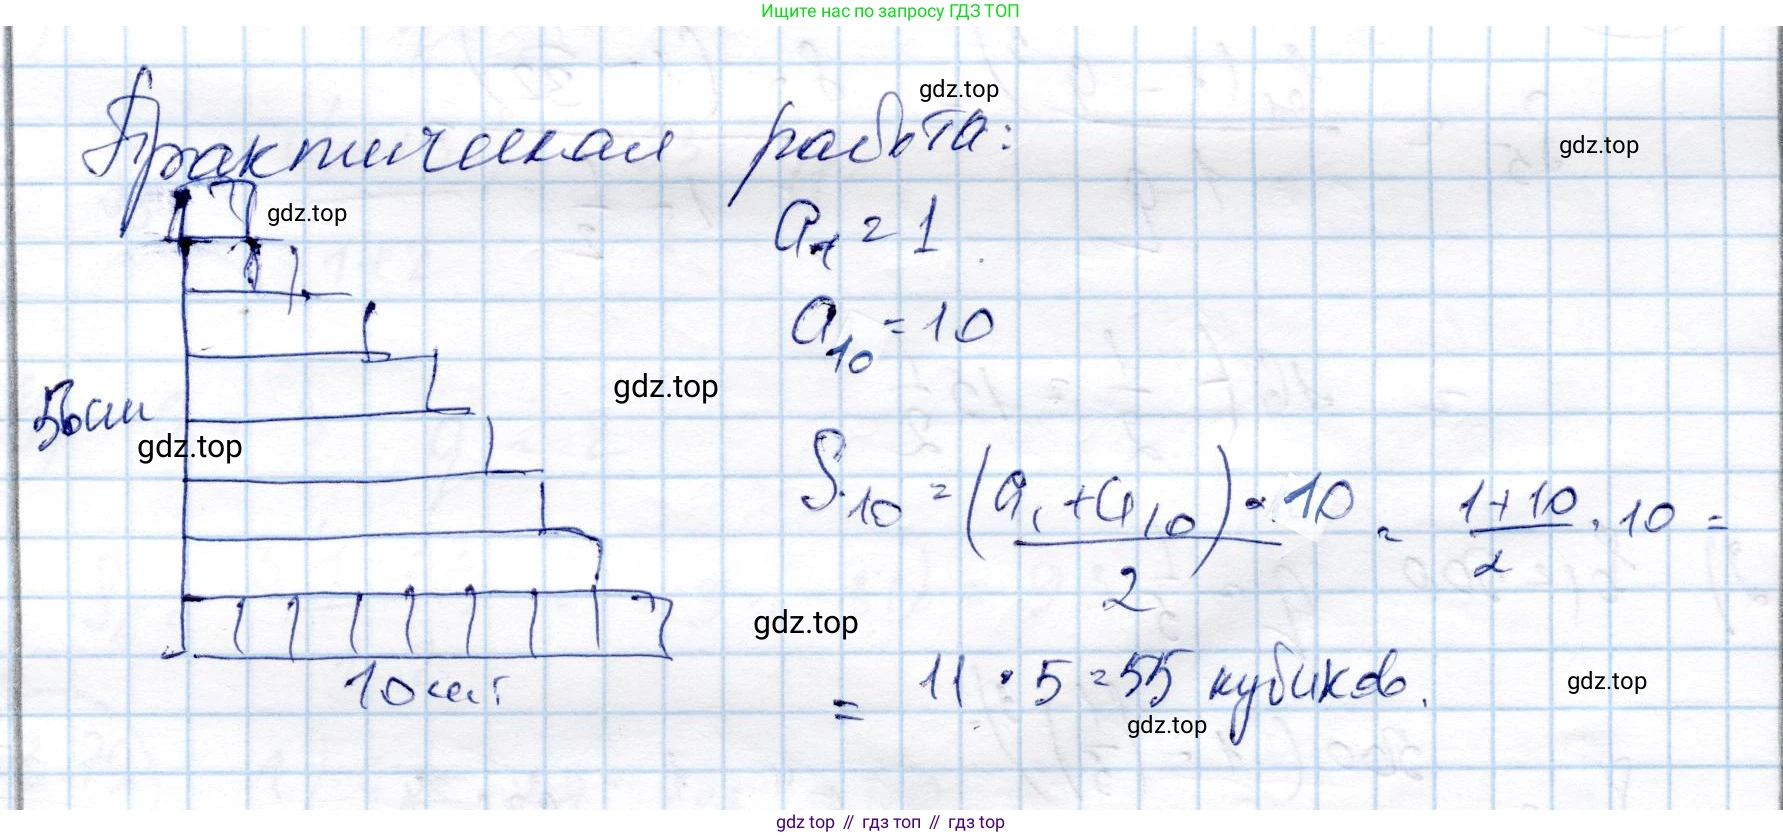 Ищите нас по запросу ГДЗ ТОП
Практическая работа:
gdz.top
gdz.top
gdz.top
a₁ = 1
a₁₀ = 10
gdz.top
gdz.top
S₁₀ = (a₁ + a₁₀) · 10 / 2 = 1 + 10 / 2 · 10 =
gdz.top
= 11 · 5 = 55 кубиков.
10 шт.
gdz.top
gdz.top
gdz top // гдз топ // гдз top